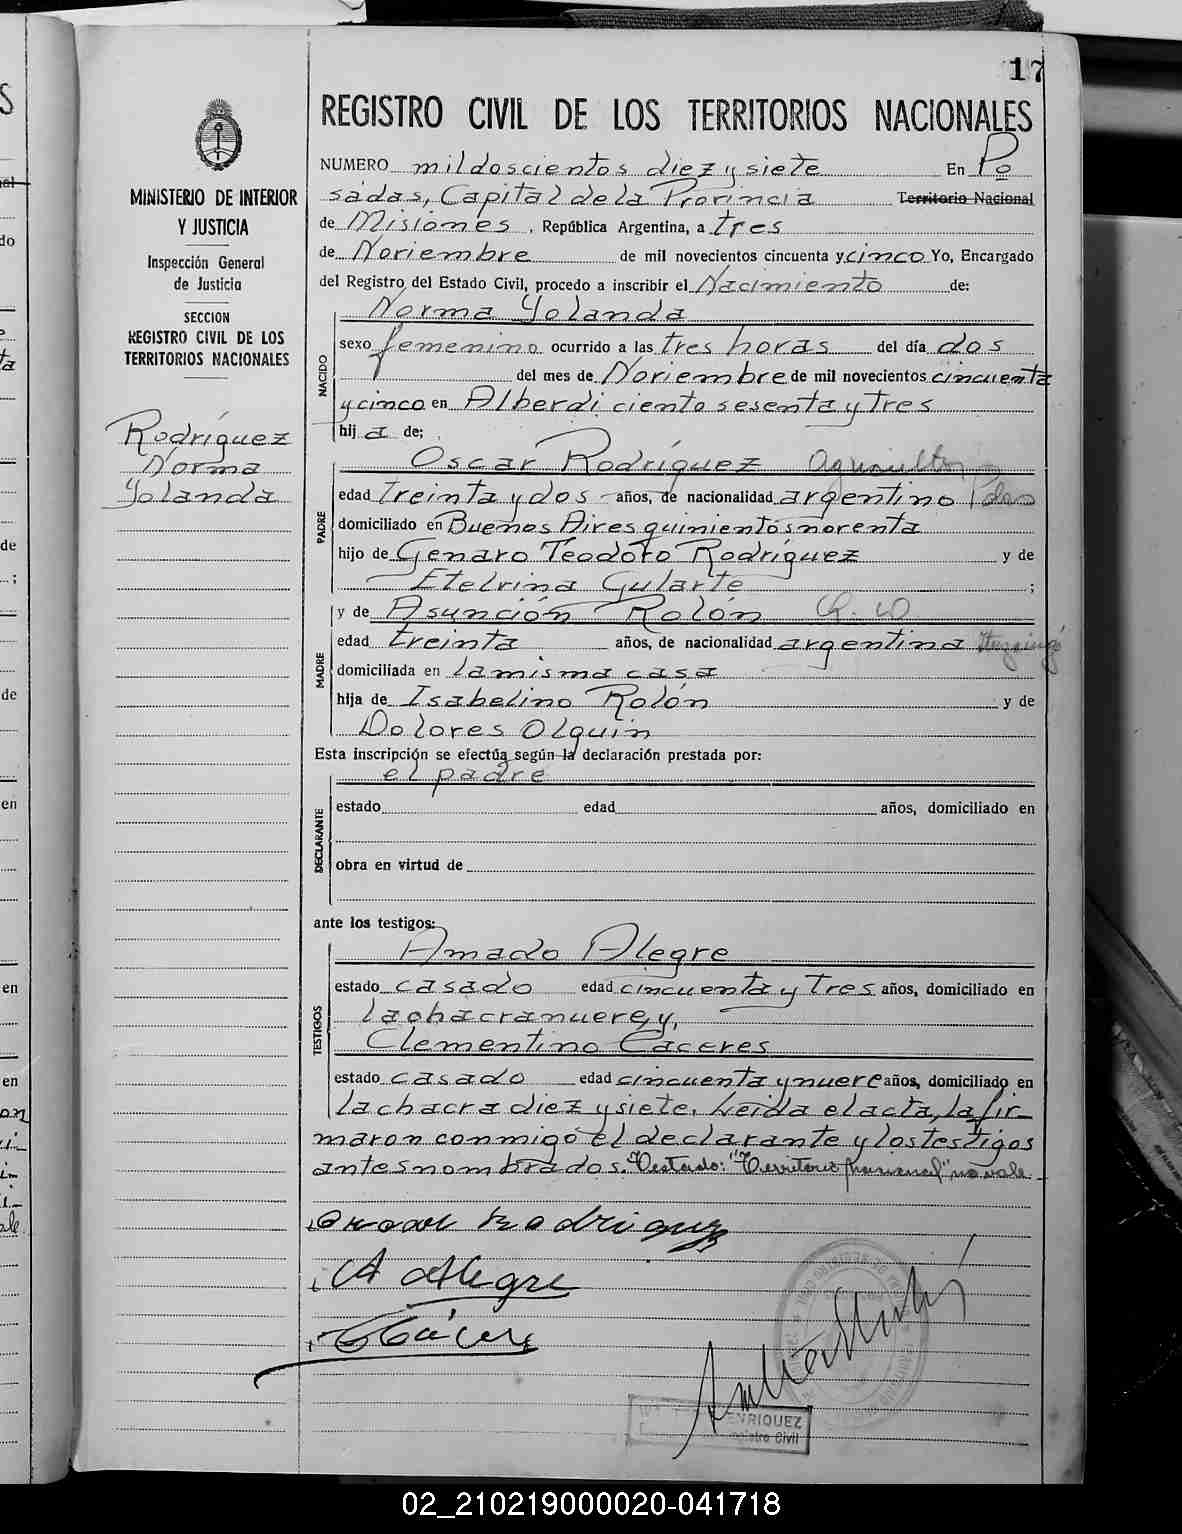 17
REGISTRO CIVIL DE LOS TERRITORIOS NACIONALES
MINISTERIO DE INTERIOR
Y JUSTICIA
Inspección General
de Justicia
SECCION
REGISTRO CIVIL DE LOS
TERRITORIOS NACIONALES
Rodríguez
Norma
Yolanda
NUMERO mil doscientos diez y siete En Po
sadas, Capital de la Provincia Territorio Nacional
de Misiones, República Argentina, a tres
de Noviembre de mil novecientos cincuenta y cinco Yo, Encargado
del Registro del Estado Civil, procedo a inscribir el Nacimiento de:
NACIDO
Norma Yolanda
sexo femenino ocurrido a las tres horas del día dos
del mes de Noviembre de mil novecientos cincuenta
y cinco en Alberdi ciento sesenta y tres
hij a de;
PADRE
Oscar Rodríguez agricultor
edad treinta y dos años, de nacionalidad argentino
domiciliado en Buenos Aires quinientos noventa
hijo de Genaro Teodoro Rodríguez y de
Etelvina Gularte ;
MADRE
y de Asunción Rolón
edad treinta años, de nacionalidad argentina Ituzaingó
domiciliada en la misma casa
hija de Isabelino Rolón y de
Dolores Olguin
Esta inscripción se efectúa según la declaración prestada por:
DECLARANTE
el padre
estado edad años, domiciliado en
obra en virtud de
ante los testigos:
TESTIGOS
Amado Alegre
estado casado edad cincuenta y tres años, domiciliado en
la chacra nueve, y,
Clementino Cáceres
estado casado edad cincuenta y nueve años, domiciliado en
la chacra diez y siete. Leida el acta, la fir-
maron conmigo el declarante y los testigos
antes nombrados. Testado: "Territorio Nacional", no vale.
Oscar Rodriguez
A Alegre
C Cáceres
ENRIQUEZ
Registro Civil
02_210219000020-041718